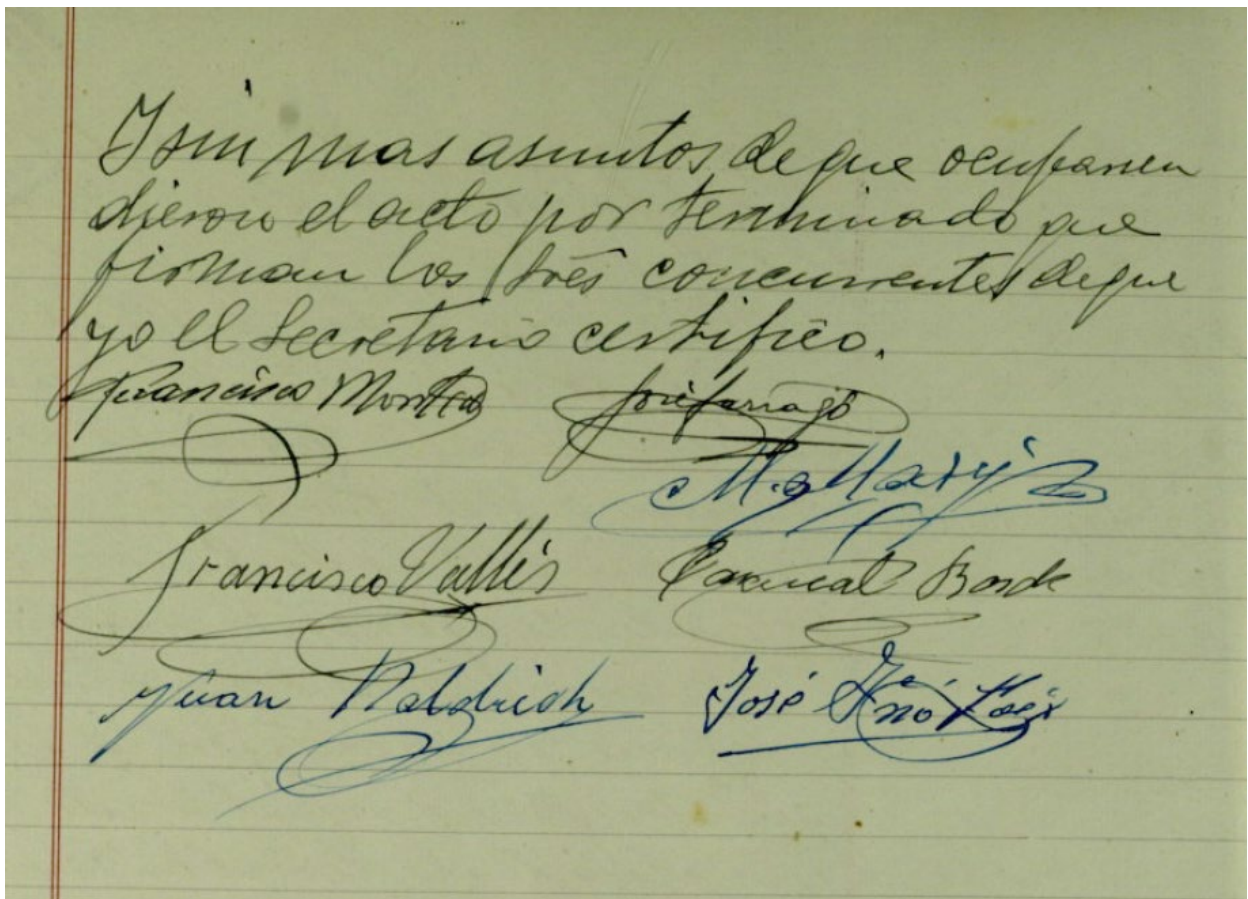 Y sin mas asuntos de que ocuparsen
dieron el acto por terminado que
firman los trés concurrentes de que
yo el Secretario certifico.
Francisco José Farragó
Francisco Vallés Pascual
Juan José